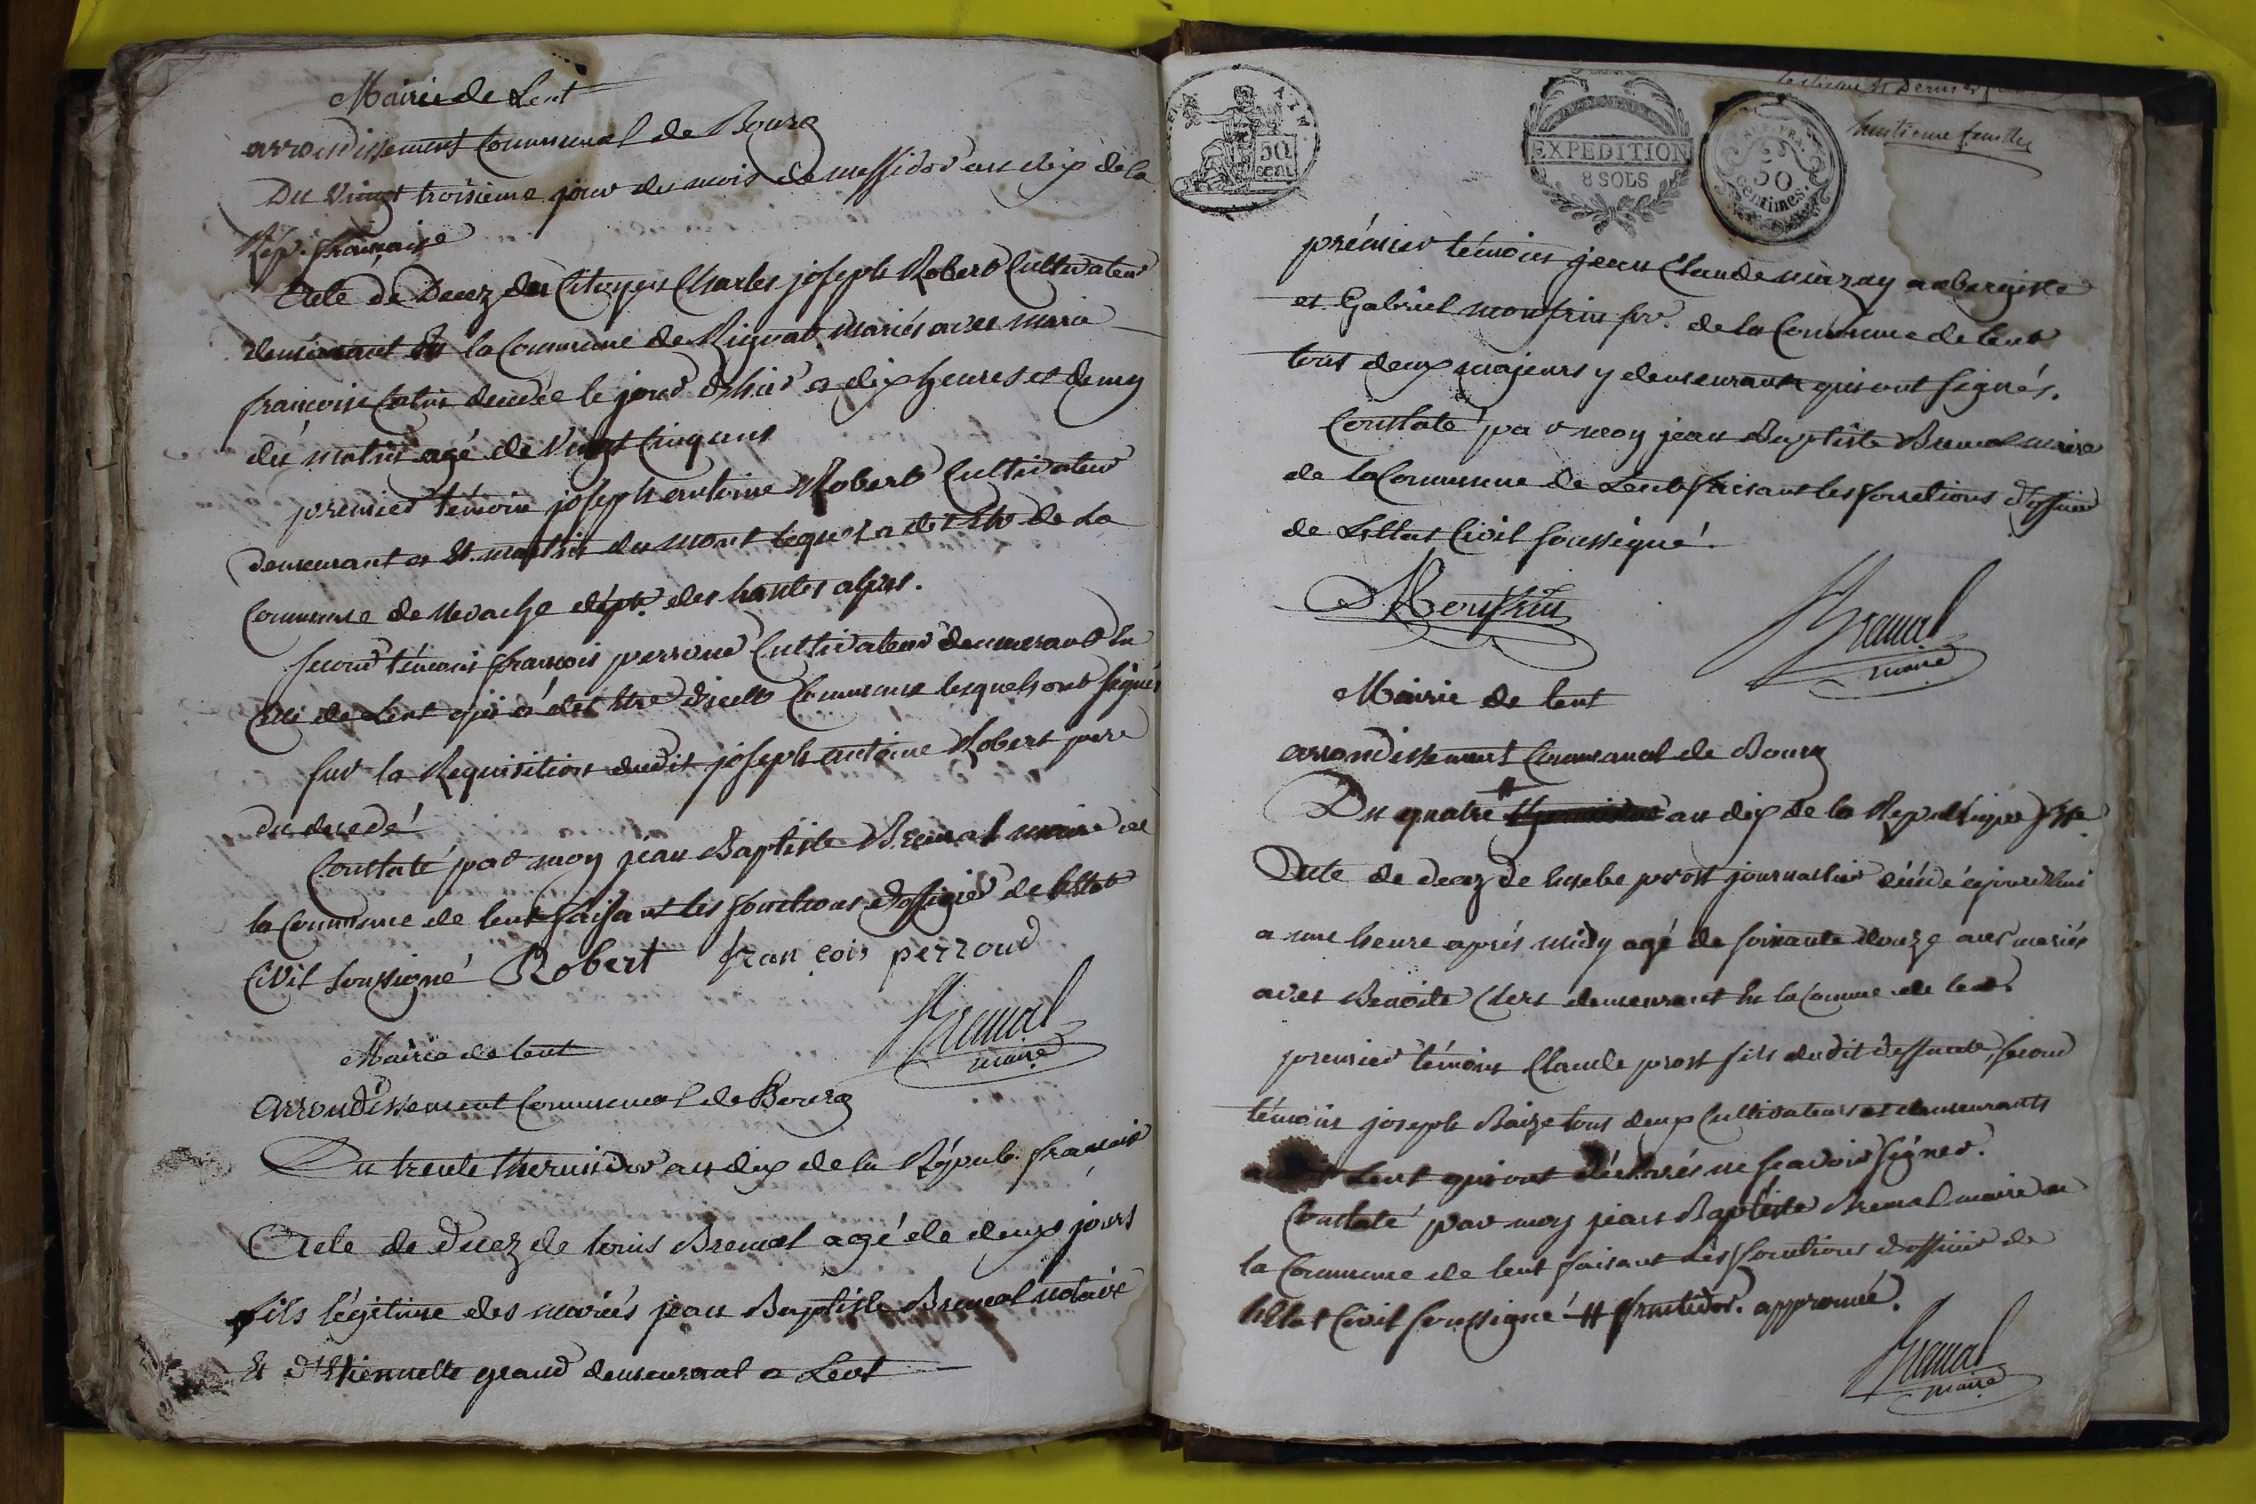 Mairie de Lent
arrondissement Communal de Bourg
Du Vingt troisieme jour du mois de messidor an dix de la
Rép. francaise
Acte de Decez du Citoyen Charles joseph Robert Cultivateur
demeurant En la Commune de Rignat mariés avec marie
francoise Catin décédée le jour d'hier a dix heures et demy
du matin agé de Vingt Cinq ans
premier témoin joseph antoine Robert Cultivateur
demeurant a St. martin du mont lequel a dit Etre de La
Commune de Nevache dépt. des hautes alpes.
second témoin francois perroud Cultivateur demeurant En
Celle de Lent qui a dit Etre d'icelle Commune lesquels ont signés
sur la Requisition dudit joseph antoine Robert pere
du decedé
Constaté par moy jean Baptiste Bremal maire de
la Commune de lent faisant les fonctions d'officier de l'Etat
Civil soussigné Robert francois perroud
Bremal
maire
Mairie de lent
Arrondissement Communal de Bourg
Du trente thermidor an dix de la Répub. francaise
Acte de decez de louis Bremal agé de deux jours
fils légitime des mariés jean Baptiste Bremal notaire
Et d'Etiennette grand demeurant a Lent
EXPEDITION
8 SOLS
50
cent
50
centimes.
huitieme feuillet
prémier témoin jean Claude mizay aubergiste
et Gabriel monfrin de la Commune de lent
tous deux majeurs y demeurants qui ont signés.
Constaté par moy jean Baptiste Bremal maire
de la Commune de Lent faisant les fonctions d'officier
de L'Etat Civil soussigné.
Monfrin
Bremal
maire
Mairie de lent
arrondissement Communal de Bourg
Du quatre # thermidor an dix de la République fse.
Acte de decez de Eusebe prost journallier décédé aujourd'hui
a une heure aprés midy agé de soixante douze ans mariés
avec Benoite Clerc demeurant En la Comune de lent.
premier témoin Claude prost fils dudit deffunct, second
témoin joseph Baize tous deux Cultivateurs et demeurants
Lent qui ont déclarés ne scavoir signer.
Constaté par moy jean Baptiste Bremal maire de
la Commune de lent faisant les fonctions d'officier de
l'Etat Civil soussigné # fructidor. approuvé.
Bremal
maire